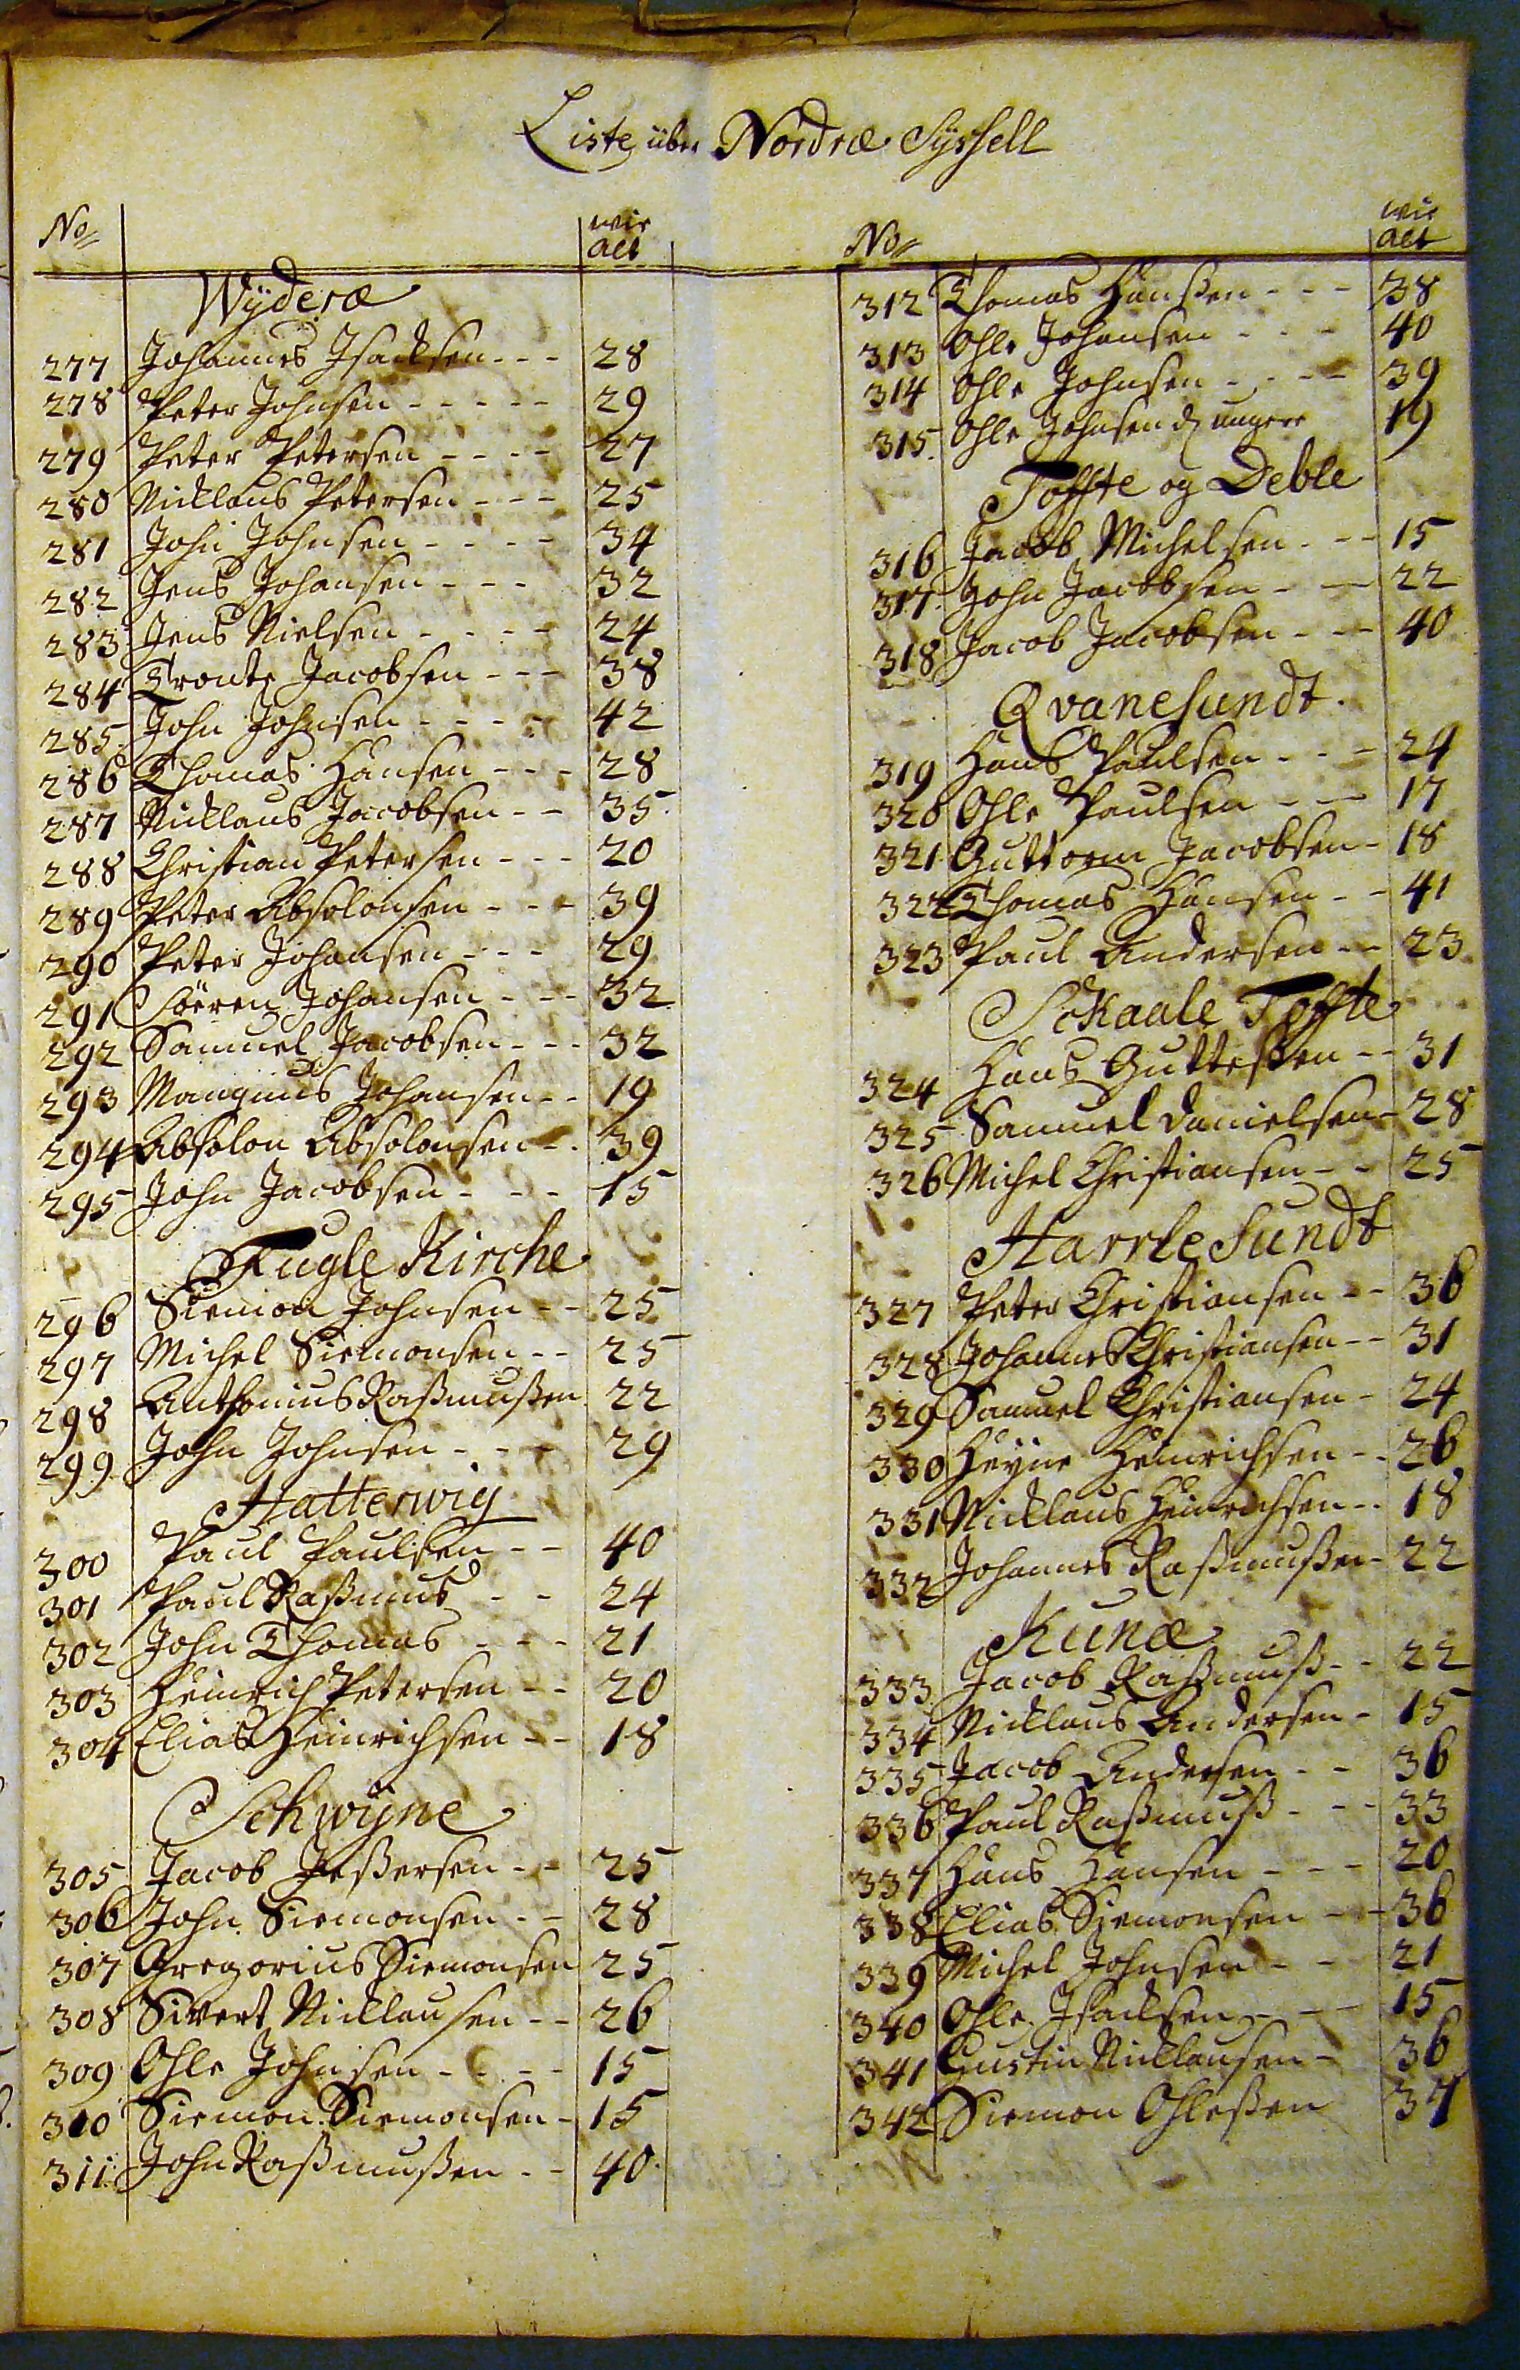 Liste über Nordræ Sÿssell
No wie alt
Wÿderæ
277 Johannes Isacksen --- 28
278 Peter Johnsen ----- 29
279 Peter Petersen ---- 27
280 Nicklaus Petersen --- 25
281 John Johnsen ---- 34
282 Jens Johansen --- 32
283 Jens Nielsen ---- 24
284 Tronte Jacobsen --- 38
285 John Johnsen ---- 42
286 Thomas Hansen --- 28
287 Nicklaus Jacobsen -- 35
288 Christian Petersen --- 20
289 Peter Absolonsen --- 39
290 Peter Johansen --- 29
291 Söeren Johansen --- 32
292 Samuel Jacobsen --- 32
293 Mangnus Johansen -- 19
294 Absolon Absolonsen -- 39
295 John Jacobsen --- 15
Fugle Kirche
296 Siemon Johnsen -- 25
297 Michel Siemonsen -- 25
298 Anthonius Raßmußen 22
299 John Johnsen --- 29
Hatterwig
300 Paul Paulsen -- 40
301 Paul Raßmus -- 24
302 John Thomas --- 21
303 Heinrich Petersen -- 20
304 Elias Heinrichsen -- 18
Schwÿne
305 Jacob Jeßersen -- 25
306 John Siemonsen -- 28
307 Gregorius Siemonsen 25
308 Sivert Nicklausen -- 26
309 Ohle Johnsen ---- 15
310 Siemon Siemonsen - 15
311 John Raßmußen -- 40
No wie alt
312 Thomas Hanßen --- 38
313 Ohle Johansen --- 40
314 Ohle Johnsen ---- 39
315 Ohle Johnsen d. ungere 19
Toffte og Deble
316 Jacob Michelsen --- 15
317 John Jacobsen --- 22
318 Jacob Jacobsen --- 40
Qvanesundt
319 Hans Paulsen --- 24
320 Ohle Paulsen --- 17
321 Guttorm Jacobsen - 18
322 Thomas Hansen -- 41
323 Paul Andersen -- 23
Sckaale Toffte
324 Hans Gutteßen -- 31
325 Samuel Danielsen - 28
326 Michel Christiansen -- 25
Harrlesundt
327 Peter Christiansen -- 36
328 Johannes Christiansen -- 31
329 Samuel Christiansen - 24
330 Heÿne Heinrichsen -- 26
331 Nicklaus Heinrichsen -- 18
332 Johannes Raßmußen - 22
Kunæ
333 Jacob Raßmuß -- 22
334 Nicklaus Andersen - 15
335 Jacob Andersen -- 36
336 Paul Raßmuß --- 33
337 Hans Hansen --- 20
338 Elias Siemonsen -- 36
339 Michel Johnsen -- 21
340 Ohle Isacksen --- 15
341 Gustin Nicklausen - 36
342 Siemon Ohleßen 37